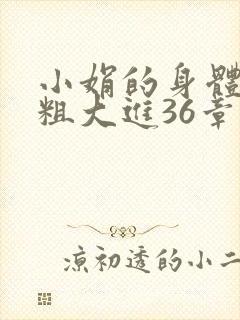 小娟的身體
粗大進36章
涼初透的小二